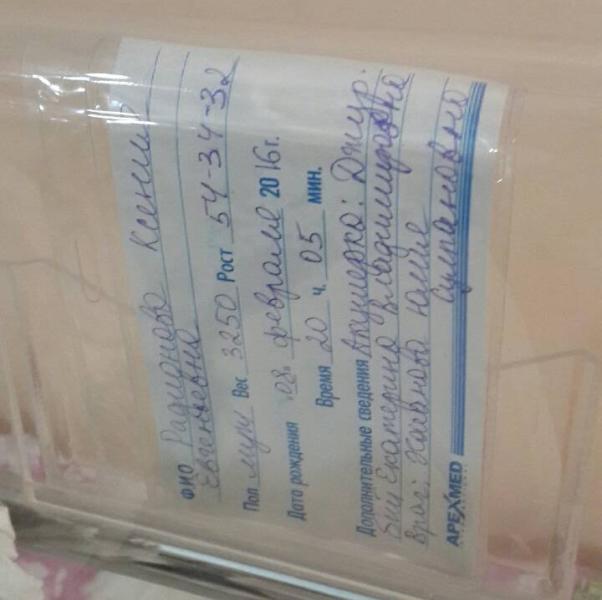 ФИО Радионова Ксения
Евгеньевна
Пол муж Вес 3250 Рост 54-34-32
Дата рождения 08. февраля 2016г.
Время 20 ч. 05 мин.
Дополнительные сведения Акушерка: Джур.
Екатерина Владимировна
врач: Юлия
APEXMED